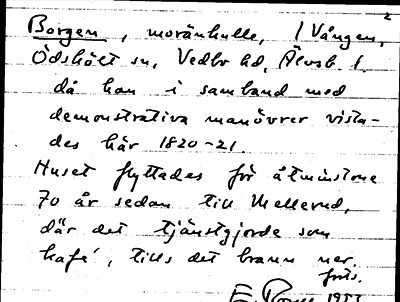 2
Borgen, moränkulle, / Vången,
Ödskölt sn, Vedbo hd, Älvsb. l.
då han i samband med
demonstrativa manövrer vista-
des här 1820-21.
Huset flyttades för åtminstone
70 år sedan till Mellerud,
där det tjänstgjorde som
kafé, tills det brann ner.
forts.
E. 1957